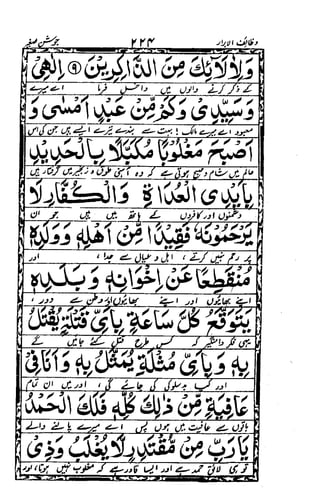 وظائف الابرار ۲۲۴ جوشن صغیر
وَلِاٰلَائِكَ مِنَ الذَّاكِرِيْنَ ⑨ اِلٰهِيْ
کے ذکر کرنے والوں میں داخل فرما اے میرے
وَسَيِّدِيْ وَكَمْ مِّنْ عَبْدٍ اَمْسٰى وَ
معبود اے میرے مالک بہت سے بندے تیرے ایسے ہیں جن کی اس
اَصْبَحَ مَغْلُوْبًا مُكَبَّلًا بِالْحَدِيْدِ
عالم میں شام و صبح ہوتی ہے کہ وہ آہنی طوق و زنجیر میں گرفتار ہیں
بِاَيْدِى الْعُدَاةِ وَالْكُفَّارِ لَا
دشمنوں اور کافروں کے ہاتھ میں ہیں جو ان
يَرْحَمُوْنَهٗ فَقِيْدًا مِّنْ اَهْلِهٖ وَوَلَدِهٖ
پر رحم نہیں کرتے، اہل و عیال سے جدا، اور
مُنْقَطِعًا عَنْ اِخْوَانِهٖ وَبَلَدِهٖ
اپنے بھائیوں اور اپنے وطن سے دور،
يَتَوَقَّعُ كُلَّ سَاعَةٍ بِاَيِّ قَتْلَةٍ يُقْتَلُ
یہی فکر دامنگیر کہ کس طرح قتل کئے جائیں گے
بِهٖ وَبِاَيِّ مُثْلَةٍ يُمَثَّلُ بِهٖ وَاَنَا فِيْ
اور کب بدسلوکی کی جائے گی، اور میں ان تمام
عَافِيَةٍ مِّنْ ذٰلِكَ كُلِّهٖ فَلَكَ الْحَمْدُ
باتوں سے عافیت میں ہوں پس اے میرے پالنے والے
يَا رَبِّ مِنْ مُّقْتَدِرٍ لَا يُغْلَبُ وَذِيْ
تو ہی لائق حمد ہے اور ایسا قادر ہے کہ مغلوب نہیں ہوتا، اور